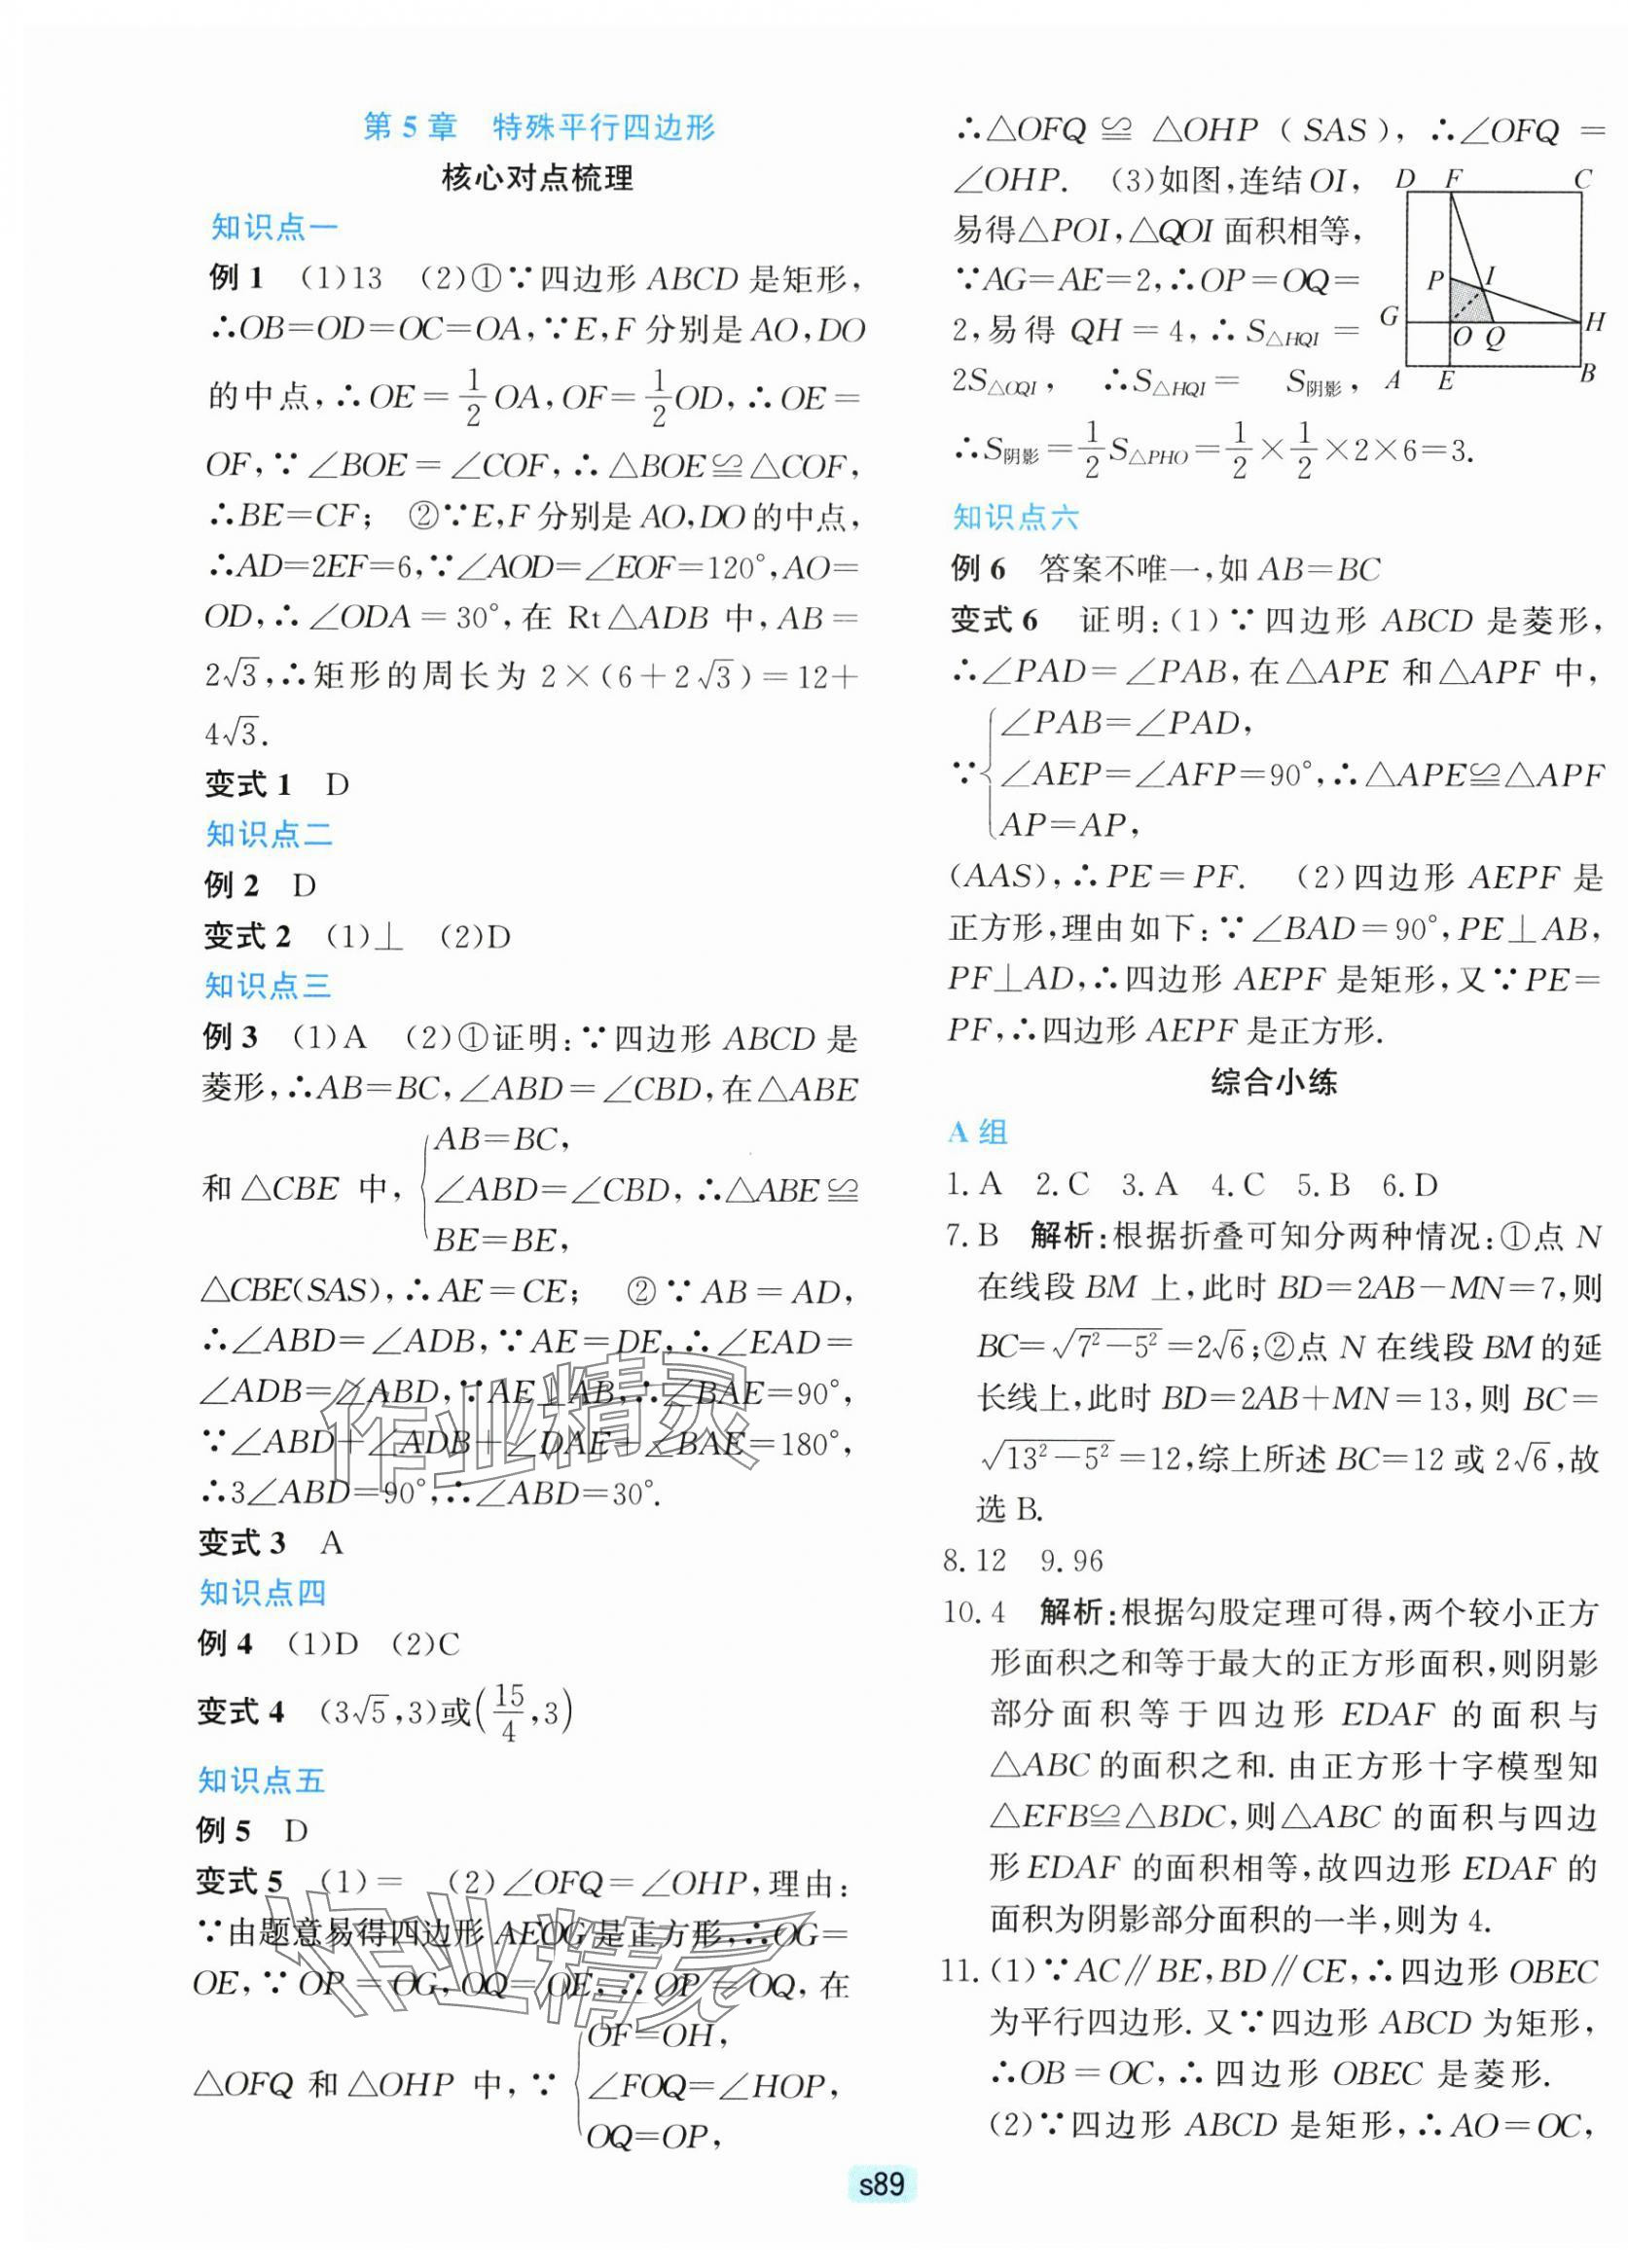 第5章　特殊平行四边形
核心对点梳理
知识点一
例1　(1)13　(2)①∵四边形 ABCD 是矩形，
∴OB=OD=OC=OA，∵E，F 分别是 AO，DO
的中点，∴OE=1/2 OA，OF=1/2 OD，∴OE=
OF，∵∠BOE=∠COF，∴△BOE≌△COF，
∴BE=CF；　②∵E，F 分别是 AO，DO 的中点，
∴AD=2EF=6，∵∠AOD=∠EOF=120°，AO=
OD，∴∠ODA=30°，在 Rt△ADB 中，AB=
2√3，∴矩形的周长为 2×(6+2√3)=12+
4√3.
变式1　D
知识点二
例2　D
变式2　(1)⊥　(2)D
知识点三
例3　(1)A　(2)①证明：∵四边形 ABCD 是
菱形，∴AB=BC，∠ABD=∠CBD，在△ABE
AB=BC，
和△CBE 中，{∠ABD=∠CBD，∴△ABE≌
BE=BE，
△CBE(SAS)，∴AE=CE；　②∵AB=AD，
∴∠ABD=∠ADB，∵AE=DE，∴∠EAD=
∠ADB=∠ABD，∵AE⊥AB，∴∠BAE=90°，
∵∠ABD+∠ADB+∠DAE+∠BAE=180°，
∴3∠ABD=90°，∴∠ABD=30°.
变式3　A
知识点四
例4　(1)D　(2)C
变式4　(3√5，3)或(15/4，3)
知识点五
例5　D
变式5　(1)=　(2)∠OFQ=∠OHP，理由：
∵由题意易得四边形 AEOG 是正方形，∴OG=
OE，∵OP=OG，OQ=OE，∴OP=OQ，在
OF=OH，
△OFQ 和△OHP 中，∵{∠FOQ=∠HOP，
OQ=OP，
∴△OFQ≌△OHP(SAS)，∴∠OFQ=
∠OHP.　(3)如图，连结OI，
易得△POI，△QOI 面积相等，
∵AG=AE=2，∴OP=OQ=
2，易得 QH=4，∴S△HQI=
2S△OQI，∴S△HQI=S阴影，
∴S阴影=1/2 S△PHO=1/2×1/2×2×6=3.
D F C
P I
G O Q H
A E B
知识点六
例6　答案不唯一，如 AB=BC
变式6　证明：(1)∵四边形 ABCD 是菱形，
∴∠PAD=∠PAB，在△APE 和△APF 中，
∠PAB=∠PAD，
∵{∠AEP=∠AFP=90°，∴△APE≌△APF
AP=AP，
(AAS)，∴PE=PF.　(2)四边形 AEPF 是
正方形，理由如下：∵∠BAD=90°，PE⊥AB，
PF⊥AD，∴四边形 AEPF 是矩形，又∵PE=
PF，∴四边形 AEPF 是正方形.
综合小练
A 组
1.A　2.C　3.A　4.C　5.B　6.D
7.B　解析：根据折叠可知分两种情况：①点 N
在线段 BM 上，此时 BD=2AB−MN=7，则
BC=√(7²−5²)=2√6；②点 N 在线段 BM 的延
长线上，此时 BD=2AB+MN=13，则 BC=
√(13²−5²)=12，综上所述 BC=12 或 2√6，故
选 B.
8.12　9.96
10.4　解析：根据勾股定理可得，两个较小正方
形面积之和等于最大的正方形面积，则阴影
部分面积等于四边形 EDAF 的面积与
△ABC 的面积之和. 由正方形十字模型知
△EFB≌△BDC，则△ABC 的面积与四边
形 EDAF 的面积相等，故四边形 EDAF 的
面积为阴影部分面积的一半，则为 4.
11.(1)∵AC∥BE，BD∥CE，∴四边形 OBEC
为平行四边形. 又∵四边形 ABCD 为矩形，
∴OB=OC，∴四边形 OBEC 是菱形.
(2)∵四边形 ABCD 是矩形，∴AO=OC，
s89
作业精灵
作业精灵